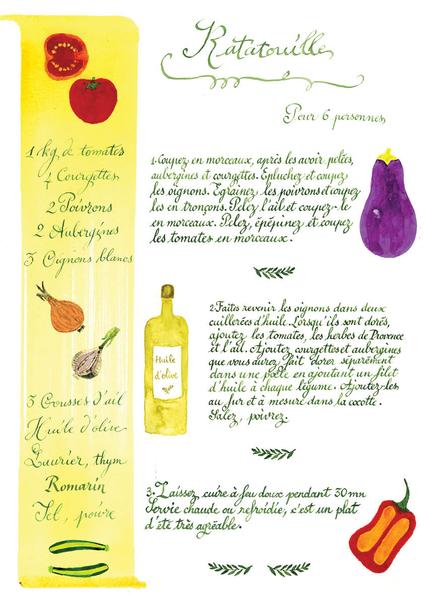 Ratatouille
Pour 6 personnes
1 kg de tomates
4 Courgettes
2 Poivrons
2 Aubergines
3 Oignons blancs
3 Gousses d'ail
Huile d'olive
Laurier, thym
Romarin
Sel, poivre
1. Coupez en morceaux, après les avoir pelées,
aubergines et courgettes. Epluchez et coupez
les oignons. Egrainez les poivrons et coupez
les en tronçons. Pelez l'ail et coupez-le
en morceaux. Pelez, épépinez et coupez
les tomates en morceaux.
Huile
d'olive
2. Faites revenir les oignons dans deux
cuillerées d'huile. Lorsqu'ils sont dorés,
ajoutez les tomates, les herbes de Provence
et l'ail. Ajoutez courgettes et aubergines
que vous aurez fait dorer séparément
dans une poêle en ajoutant un filet
d'huile à chaque légume. Ajoutez-les
au fur et à mesure dans la cocotte.
Salez, poivrez.
3. Laissez cuire à feu doux pendant 30mn
Servie chaude ou refroidie, c'est un plat
d'été très agréable.